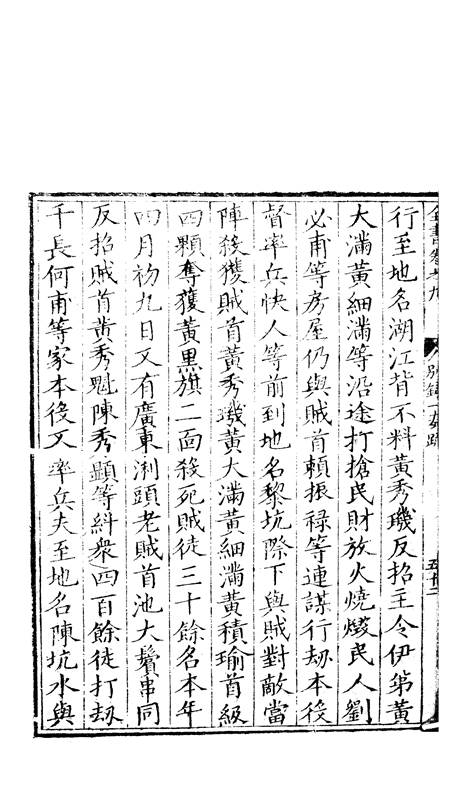 全書卷之九 別錄一 奏疏 五十二
行至地名湖江背不料黃秀璣反招主令伊弟黃
大滿黃細滿等沿途打搶民財放火燒燬民人劉
必甫等房屋仍與賊首賴振祿等連謀行刼本後
督率兵快人等前到地名黎坑際下與賊對敵當
陣殺獲賊首黃秀璣黃大滿黃細滿黃積瑜首級
四顆奪獲黃黑旗二面殺死賊徒三十餘名本年
四月初九日又有廣東浰頭老賊首池大鬢串同
反招賊首黃秀魁陳秀顯等糾衆四百餘徒打刼
千長何甫等家本後又率兵夫至地名陳坑水與